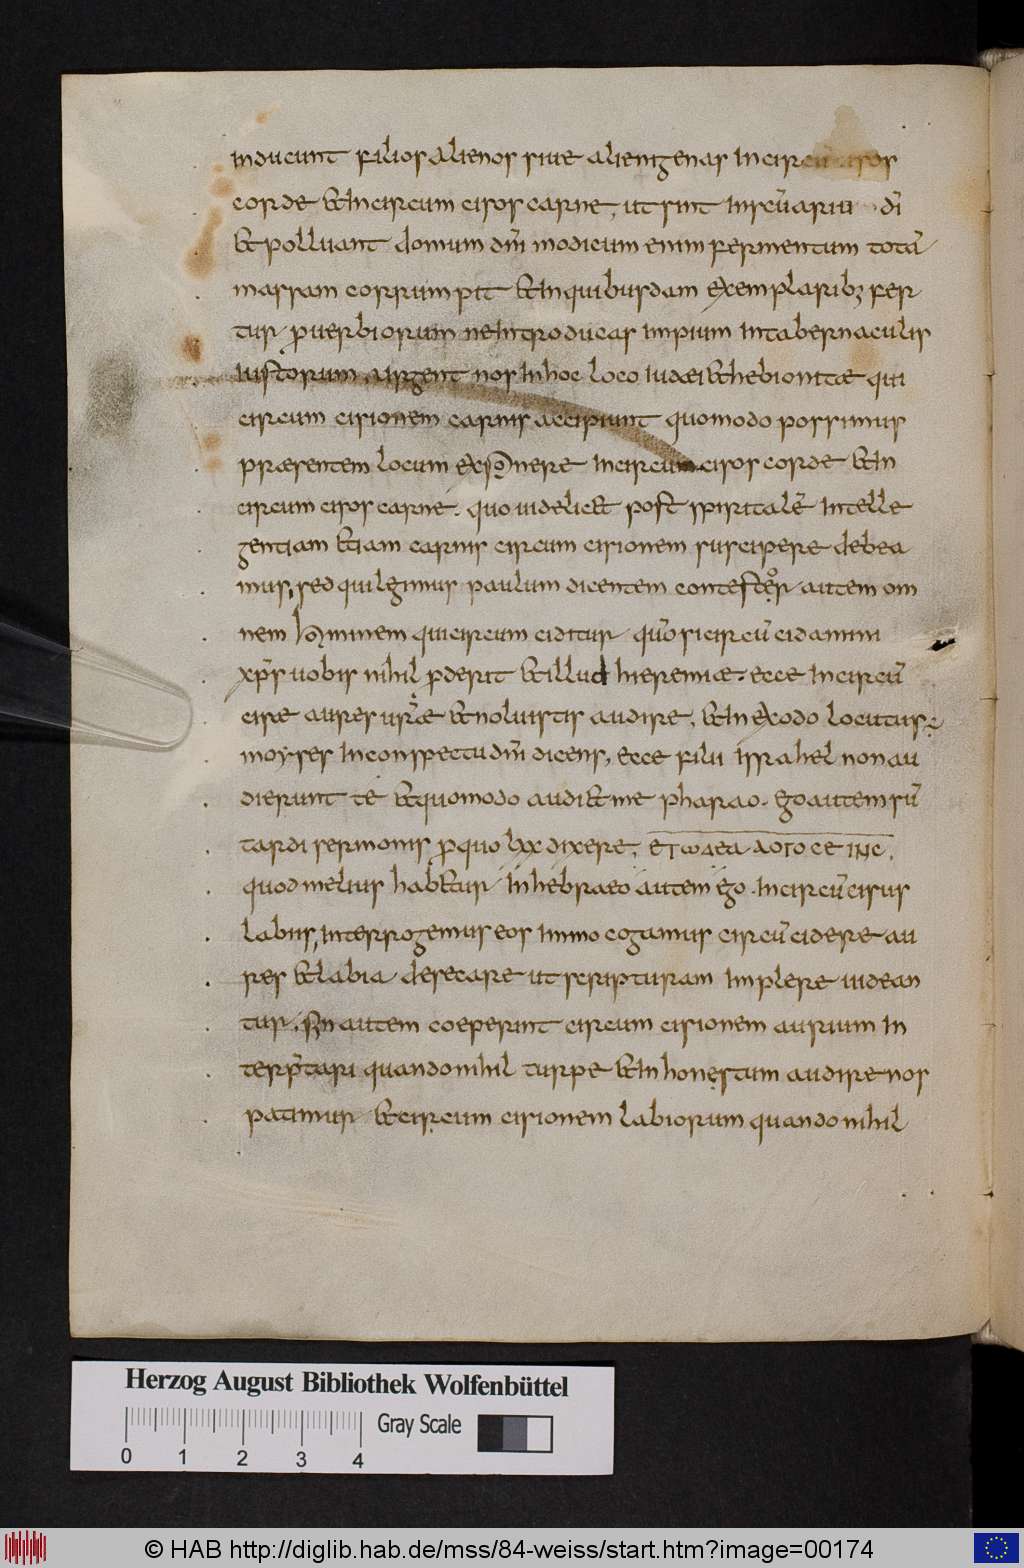 inducunt filios alienos siue alienigenas incircu cisos
corde & incircum cisos carne, ut sint inscūariu dī
& polluant domum dn̄i modicum enim fermentum totā
massam corrumpit & inquibusdam exemplaribꝫ fer
tur ꝓuerbiorum neintroducas impium intabernaculis
iustorum, urgent nos inhoc loco iudaei & hebionitae qui
circum cisionem carnis accipiunt quomodo possimus
praesentem locum exponere incircum cisos corde & in
circum cisos carne. quo uidelic& post spiritalē intelle
gentiam &iam carnis circum cisionem suscipere debea
mus, sed qui legimus paulum dicentem contestor autem om
nem hominem qui circum ciditur quō si circū cidamini
xp̄s uobis nihil ꝓderit & illud hieremiae. ecce incircū
cisae aures ur̄ae & noluistis audire, & in exodo locutus ē
moyses inconspectu dn̄i dicens, ecce filii israhel non au
dierunt te & quomodo audi& me pharao. ego autem sū
tardi sermonis ꝓ quo lxx dixere, ΕΓΩ ΔΕ ΑΛΟΓΟC ΕΙΜΙ.
quod melius hab&ur in hebraeo autem ego incircūcisus
labiis, interrogemus eos immo cogamus circū cidere au
res & labia desecare ut scripturam implere uidean
tur, sin autem coeperint circum cisionem aurium in
terp̄tari quando nihil turpe & inhonestum audire nos
patimur & circum cisionem labiorum quando nihil
Herzog August Bibliothek Wolfenbüttel
Gray Scale
0 1 2 3 4
© HAB http://diglib.hab.de/mss/84-weiss/start.htm?image=00174